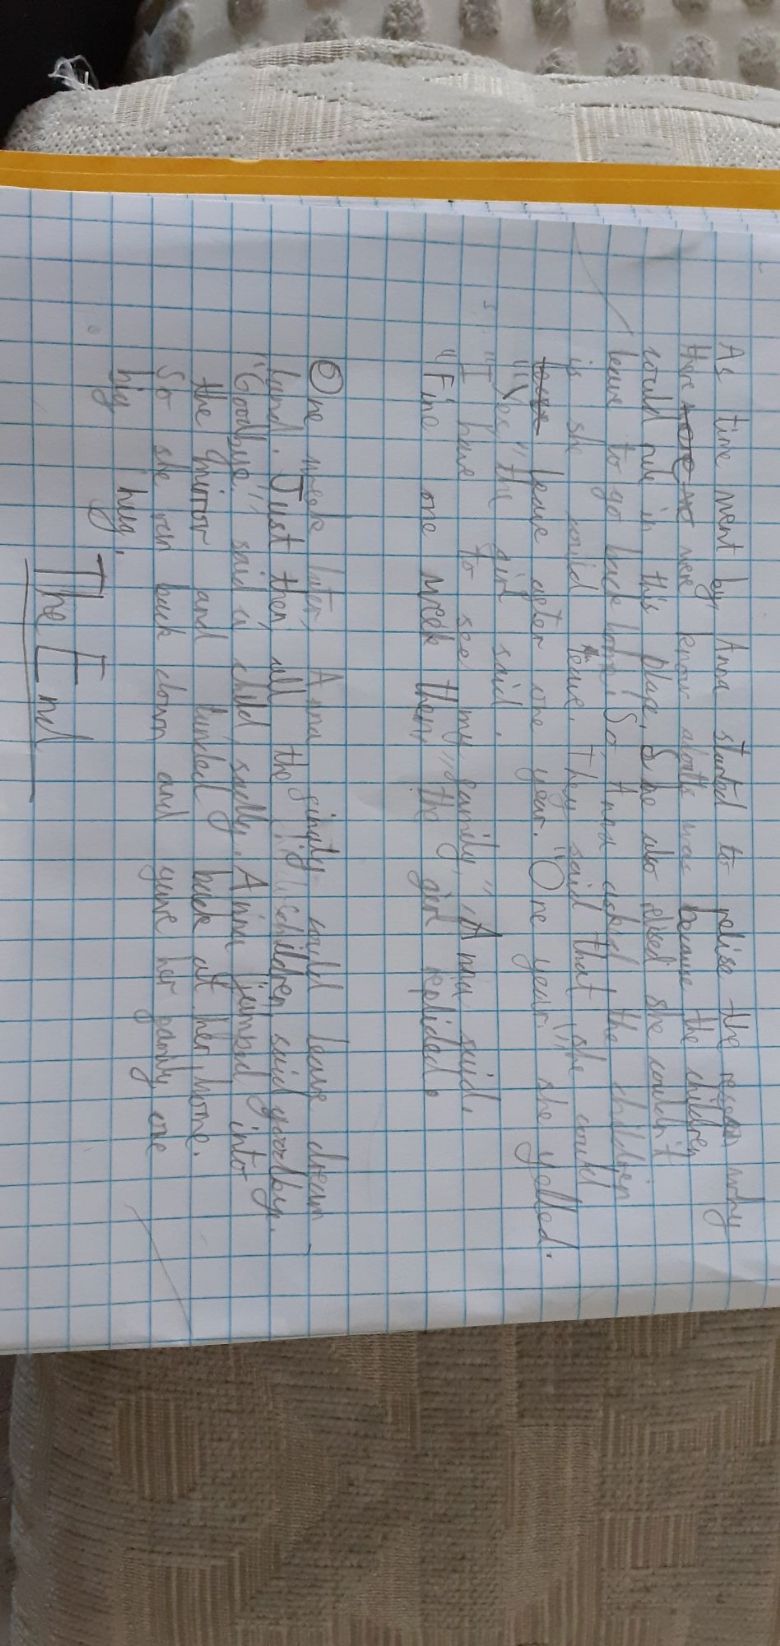 As time went by, Anna started to relise the reason why
there were know adults was because the children
could run in this place. She also relised she couldn't
leave to go back home. So Anna asked the children
if she could leave. They said that she could
leave after one year. "One year" she yelled.
"Yes," the girl said.
"I have to see my family," Anna said.
"Fine one week then" the girl replided.
One week later, Anna finally could leave dream
land. Just then, all the children said goodby.
"Goodbye" said a child sadly. Anna jumped into
the mirror and landed back at her home.
So she ran back down and gave her family one
big hug.
The End